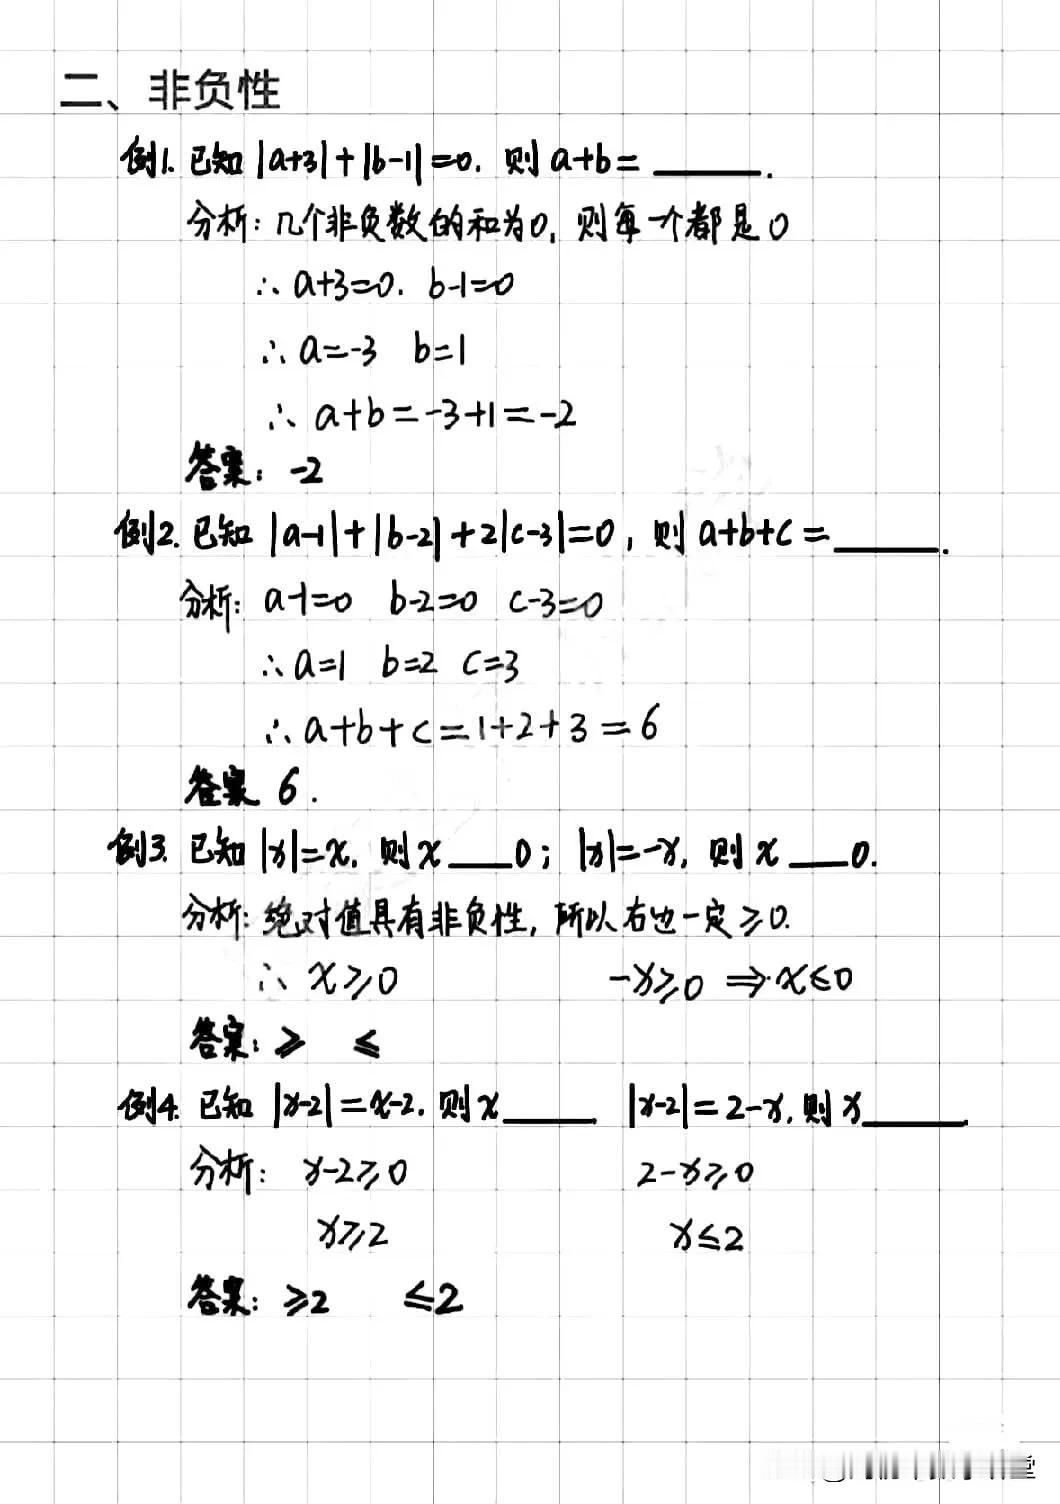 二、非负性
例1. 已知 |a+3|+|b-1|=0. 则 a+b= ______.
分析: 几个非负数的和为0, 则每一个都是0
∴ a+3=0. b-1=0
∴ a=-3 b=1
∴ a+b=-3+1=-2
答案: -2
例2. 已知 |a-1|+|b-2|+2|c-3|=0, 则 a+b+c=______.
分析: a-1=0 b-2=0 c-3=0
∴ a=1 b=2 c=3
∴ a+b+c=1+2+3=6
答案 6.
例3. 已知 |x|=x. 则 x ___0; |x|=-x, 则 x ___0.
分析: 绝对值具有非负性, 所以右边一定≥0.
∴ x≥0 -x≥0 ⇒ x≤0
答案: ≥ ≤
例4. 已知 |x-2|=x-2. 则 x______ |x-2|=2-x, 则 x______.
分析: x-2≥0 2-x≥0
x≥2 x≤2
答案: ≥2 ≤2